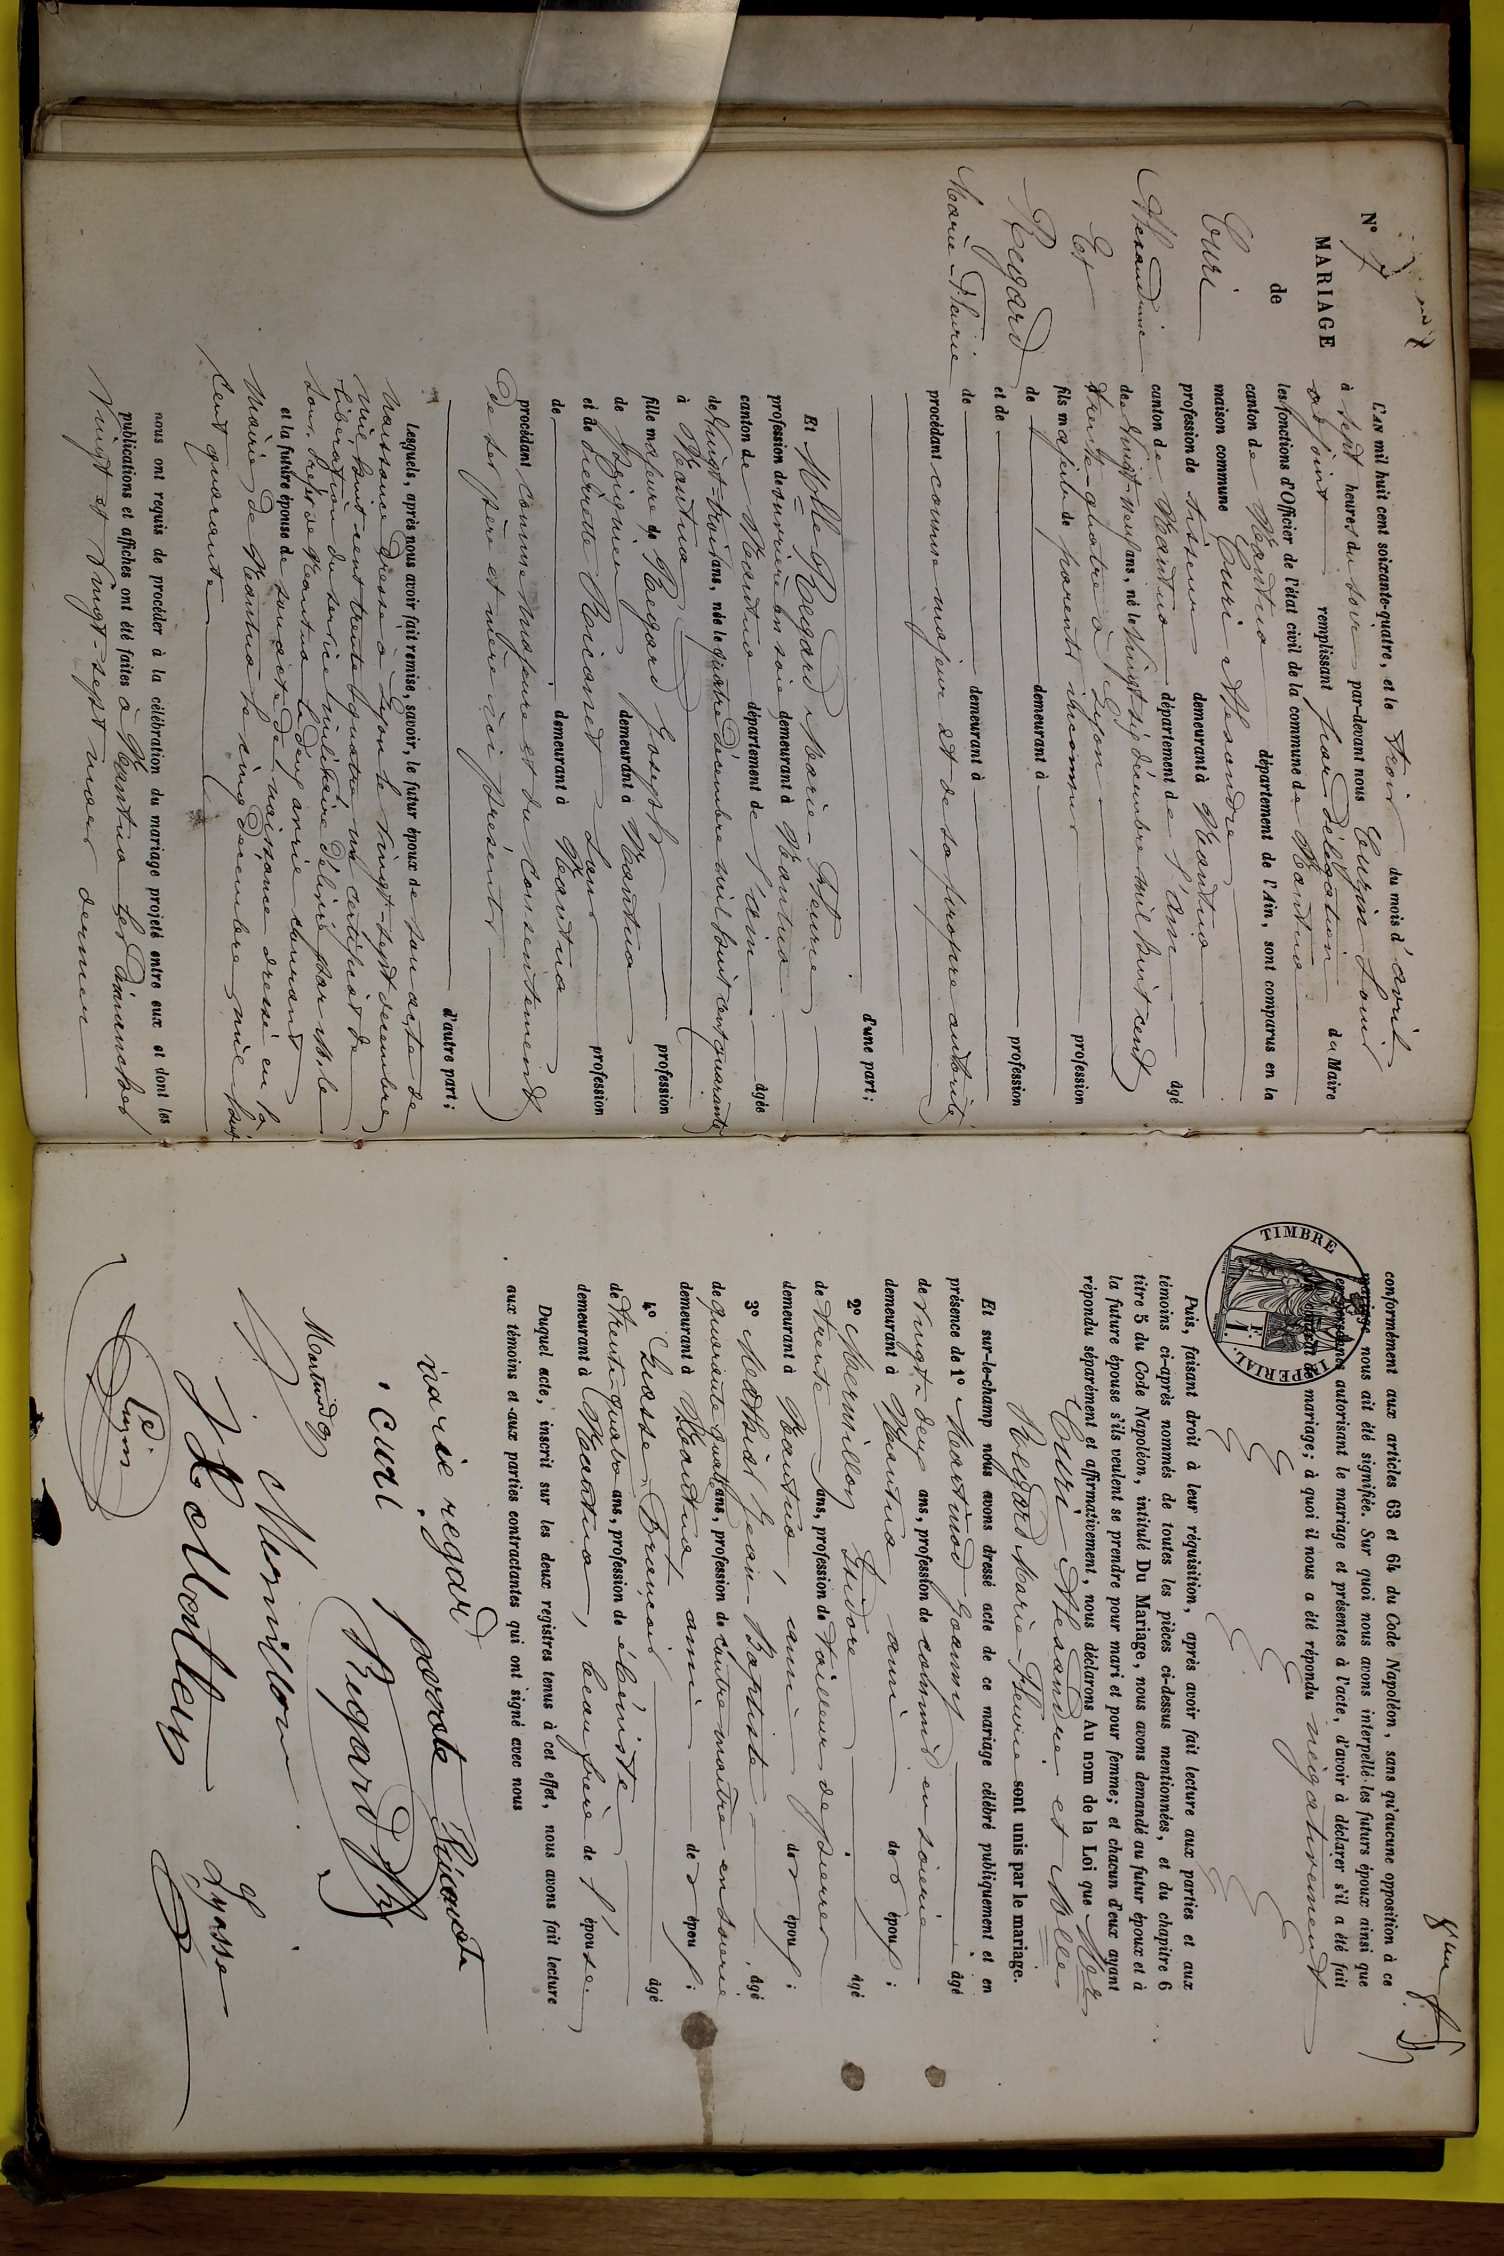 N° 7
MARIAGE
de
Curi
Alexandrine
Et
Regard
Marie-Fleurie
L'AN mil huit cent soixante-quatre, et le trois du mois d'avril
à sept heures du soir par-devant nous Cuzin Louis
adjoint remplissant par délégation du Maire
les fonctions d'Officier de l'état civil de la commune de Nantua
canton de Nantua département de l'Ain, sont comparus en la
maison commune Curi Alexandre
profession de tisseur demeurant à Nantua
canton de Nantua département de l'ain âgé
de Vingt-neuf ans, né le Vingt six décembre mil huit cent
trente-quatre à Lyon
fils majeur de parents inconnus profession
de demeurant à
et de profession
de demeurant à
procédant comme majeur et de sa propre autorité
d'une part;
Et Melle Regard Marie-Fleurie
profession de ouvrière en soie demeurant à Nantua
canton de Nantua département de l'ain âgée
de Vingt-trois ans, née le quatre décembre mil huit cent quarante
à Nantua
fille majeure de Regard Joseph profession
de demeurant à Nantua
et de Pierrette Poiconet Sans profession
de demeurant à Nantua
procédant comme majeure et du Consentement
de ses père et mère ici présents
d'autre part;
Lesquels, après nous avoir fait remise, savoir, le futur époux de son acte de
naissance dressé à Lyon le vingt-sept décembre
mil huit cent trente quatre un certificat de
libération du service militaire délivré par M. le
Sous-Préfet de Nantua le deux avril courant
et la future épouse de son acte de naissance dressé en la
Mairie de Nantua le cinq décembre mil huit
Cent quarante
nous ont requis de procéder à la célébration du mariage projeté entre eux et dont les
publications et affiches ont été faites à Nantua les dimanches
vingt et Vingt-sept mars dernier
conformément aux articles 63 et 64 du Code Napoléon, sans qu'aucune opposition à ce
mariage nous ait été signifiée. Sur quoi nous avons interpellé les futurs époux ainsi que
les personnes autorisant le mariage et présentes à l'acte, d'avoir à déclarer s'il a été fait
de mariage; à quoi il nous a été répondu négativement
TIMBRE IMPERIAL
1 F.
Puis, faisant droit à leur réquisition, après avoir fait lecture aux parties et aux
témoins ci-après nommés de toutes les pièces ci-dessus mentionnées, et du chapitre 6
titre 5 du Code Napoléon, intitulé Du Mariage, nous avons demandé au futur époux et à
la future épouse s'ils veulent se prendre pour mari et pour femme; et chacun d'eux ayant
répondu séparément et affirmativement, nous déclarons Au nom de la Loi que Mr
Curi Alexandre et Melle
Regard Marie-Fleurie sont unis par le mariage.
Et sur-le-champ nous avons dressé acte de ce mariage célébré publiquement et en
présence de 1° Martinod Joanny âgé
de vingt-deux ans, profession de commis en soierie
demeurant à Nantua ami des époux;
2° Mermillon Isidore âgé
de trente ans, profession de tailleur de pierres
demeurant à Nantua, ami des époux;
3° Mathieu Jean-Baptiste âgé
de quarante quatre ans, profession de contre maître en soierie
demeurant à Nantua, ami des époux;
4° François âgé
de trente-quatre ans, profession de ébéniste
demeurant à Nantua, beau frère de l'épouse.
Duquel acte, inscrit sur les deux registres tenus à cet effet, nous avons fait lecture
aux témoins et aux parties contractantes qui ont signé avec nous
marie regard
curi
Regard
Martinod
Mermillon
Cuzin